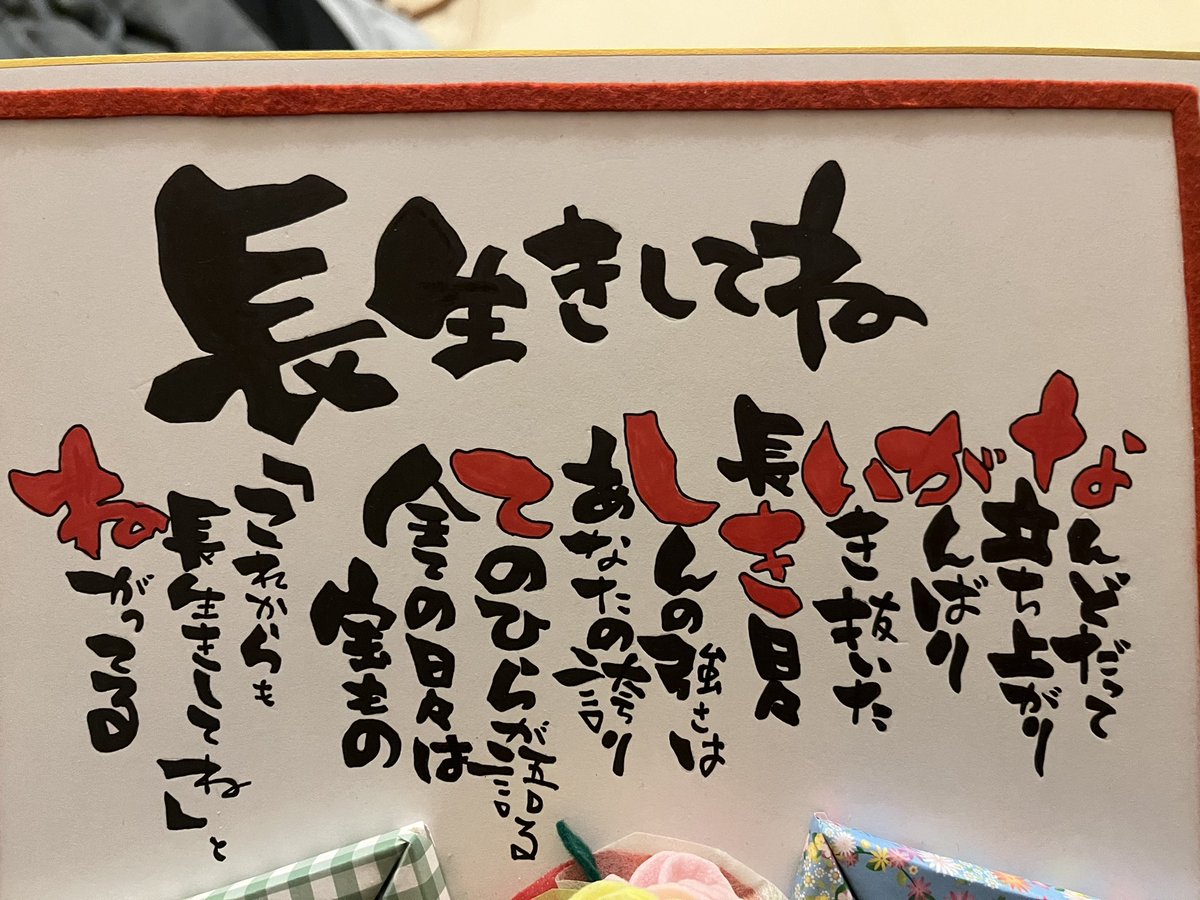 長生きしてね
なんどだって
立ち上がり
がんばり
いき抜いた
長き日々
しんの強さは
あなたの誇り
てのひらが語る
全ての日々は
宝もの
「これからも
長生きしてね」と
ねがってる